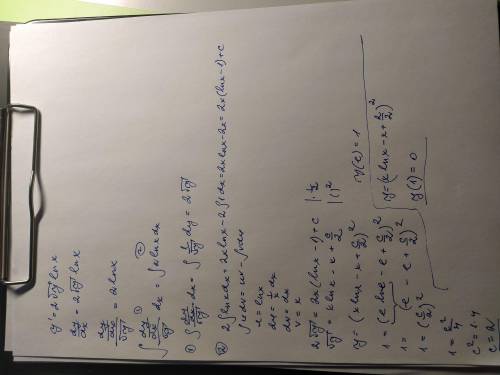 y' = 2√y ln x
dy/dx = 2√y ln x
(dy/dx)/√y = 2 ln x
∫ (dy/dx)/√y dx = ∫ 2 ln x dx
① ∫ (dy/dx)/√y dx = ∫ 1/√y dy = 2√y
② 2∫ ln x dx = 2x ln x - 2∫ 1 dx = 2x ln x - 2x = 2x(ln x - 1) + c
∫ u dv = uv - ∫ v du
u = ln x
du = 1/x dx
dv = dx
v = x
2√y = 2x(ln x - 1) + c | · 1/2
√y = x ln x - x + c/2 | ( )²
y = (x ln x - x + c/2)²
y(e) = 1
1 = (e ln e - e + c/2)²
1 = (e - e + c/2)²
1 = (c/2)²
1 = c²/4
c² = 1 · 4
c = 2
y = (x ln x - x + 2/2)²
y(1) = 0